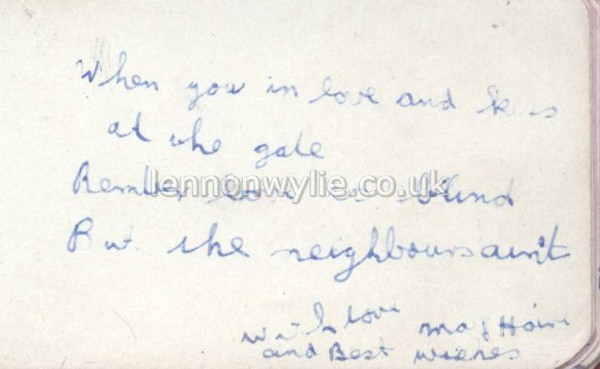 When you in love and kess
at the gate
Rember love is blind
But the neighbours ain't
With love
and Best wishes
lennonwylie.co.uk